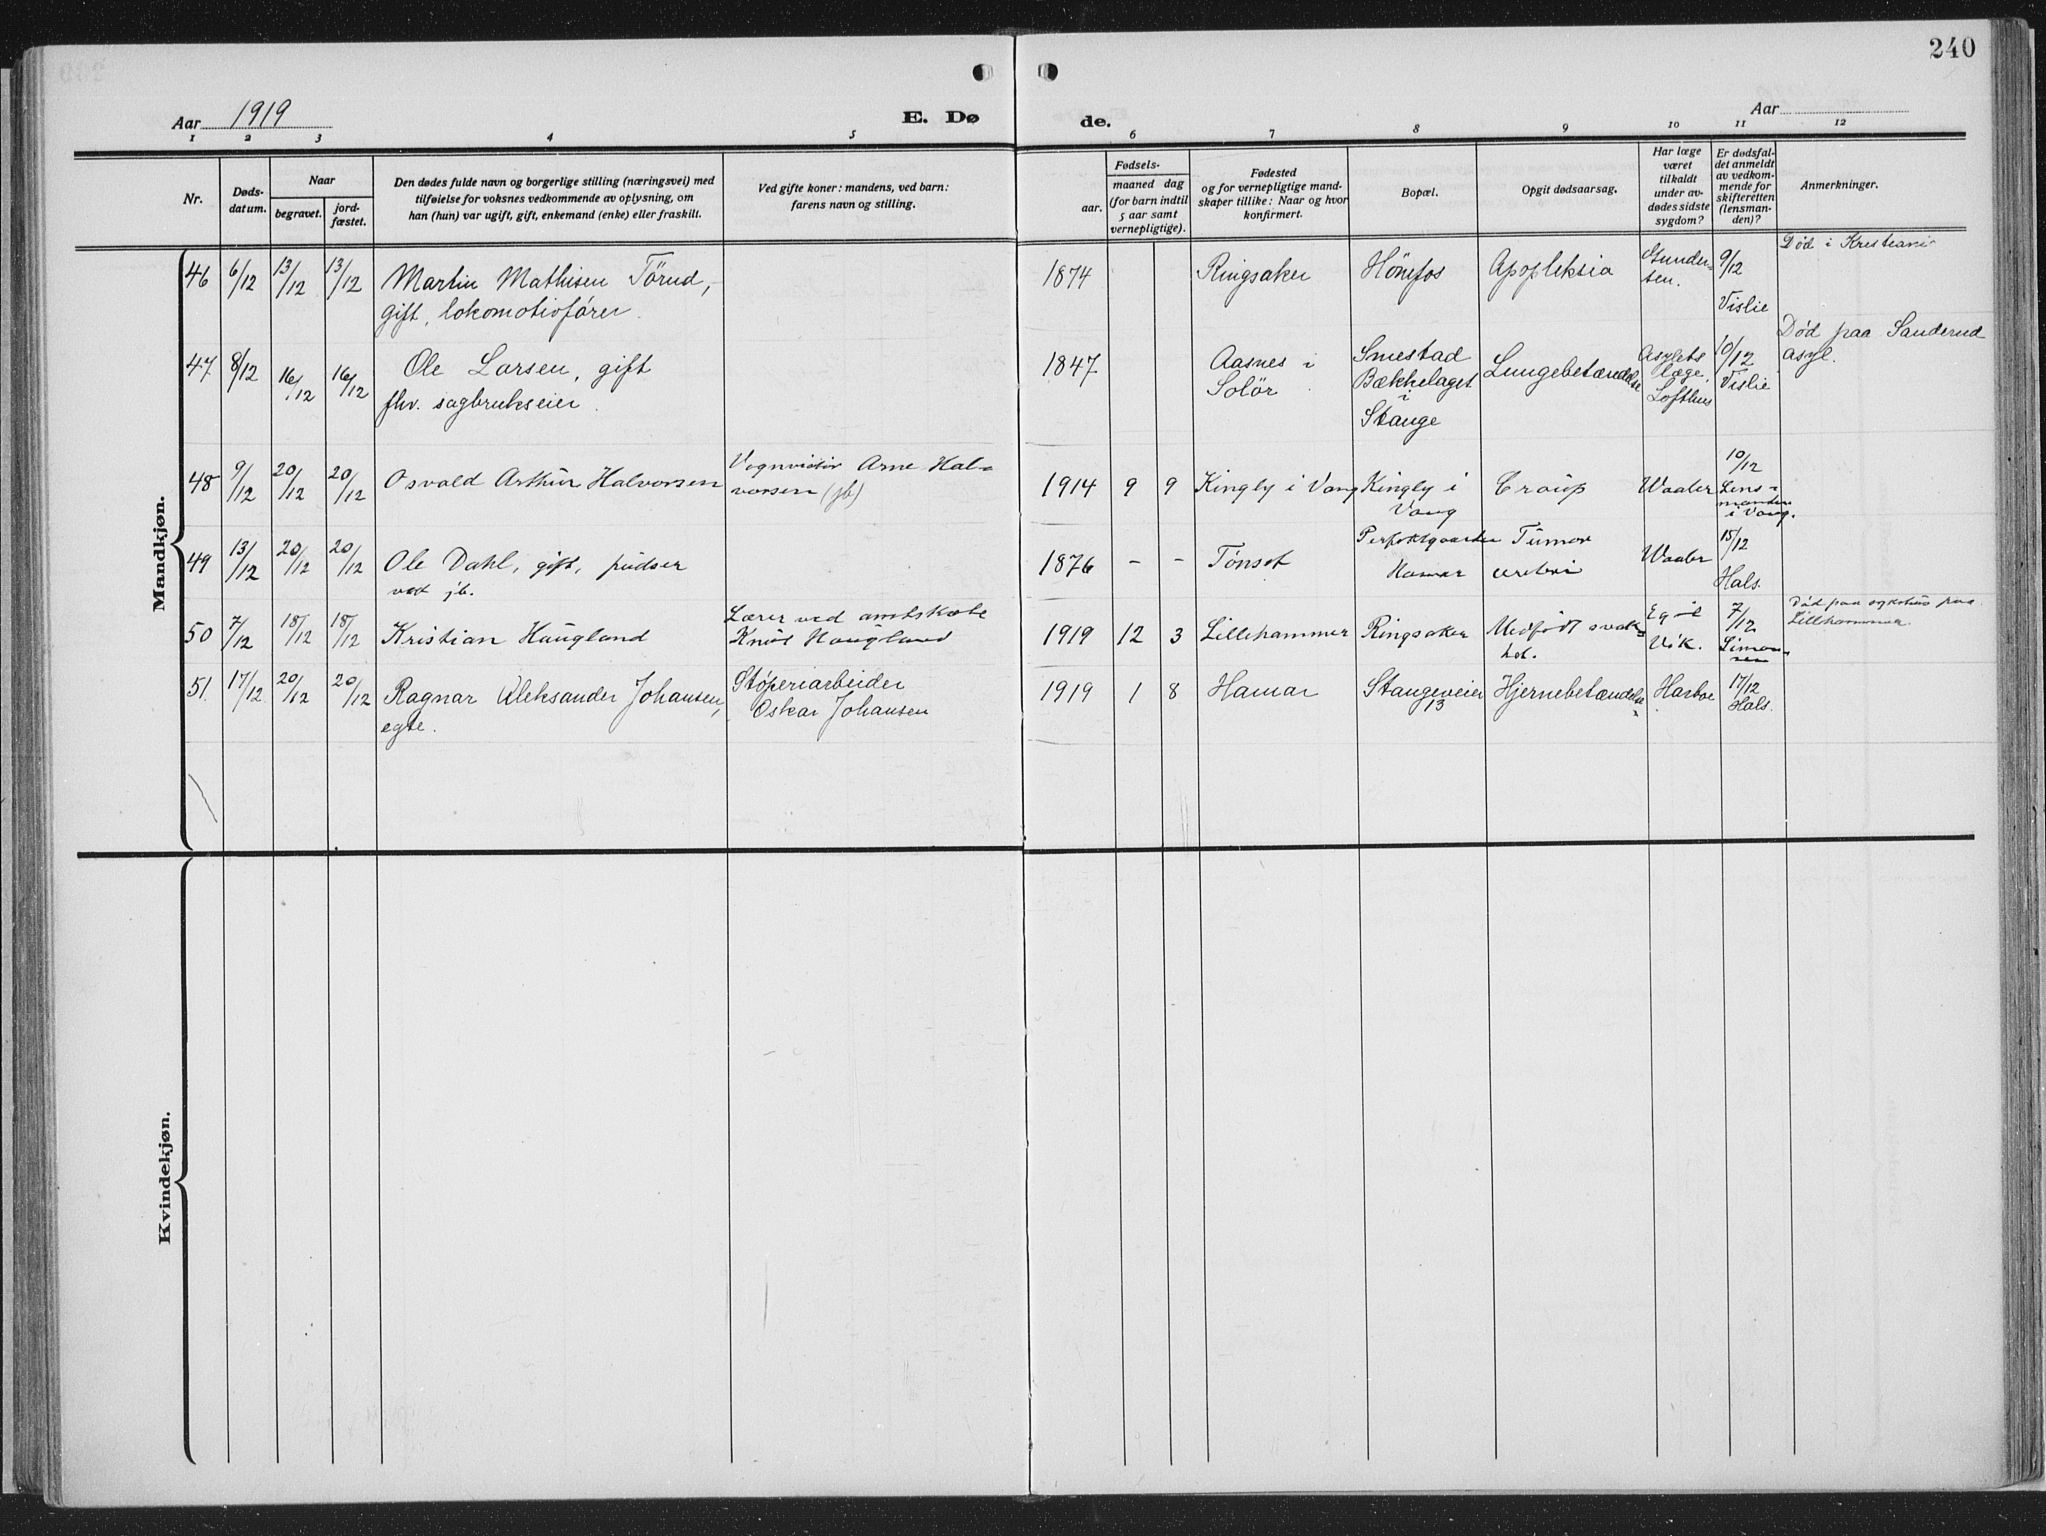 240
Aar 1919
E. Dø
de.
Aar
1 2 3 4 5 6 7 8 9 10 11 12
Nr.
Døds-
datum.
Naar
begravet.
jord-
fæstet.
Den dødes fulde navn og borgerlige stilling (næringsvei) med
tilføielse for voksnes vedkommende av oplysning, om
han (hun) var ugift, gift, enkemand (enke) eller fraskilt.
Ved gifte koner: mandens, ved barn:
farens navn og stilling.
Fødsels-
aar.
maaned dag
(for barn indtil
5 aar samt
vernepligtige).
Fødested
og for vernepligtige mand-
skaper tillike: Naar og hvor
konfirmert.
Bopæl.
Opgit dødsaarsag.
Har læge
været
tilkaldt
under av-
dødes sidste
sygdom?
Er dødsfal-
det anmeldt
av vedkom-
mende for
skifteretten
(lensman-
den)?
Anmerkninger.
Mandkjøn.
46 6/12 13/12 13/12 Martin Mathisen Törud,
gift, lokomotivfører.
1874 Ringsaker Hönefos Apopleksia
Gunder-
sen.
9/12
Vislie
Død i Kristiani-
47 8/12 16/12 16/12 Ole Larsen, gift
fhv. sagbrukseier.
1847 Aasnes i
Solör
Smestad
Bækkelaget
i
Stange
Lungebetændelse
Asylets
læge,
Lofthus
10/12
Vislie
Død paa Sanderud
asyl.
48 9/12 20/12 20/12 Osvald Arthur Halvorsen
Vognvisitør Arne Hal-
vorsen (jb)
1914 9 9 Kingly i Vang Kingly i
Vang
Croup Waaler
10/12
Lens-
manden
i Vang.
49 13/12 20/12 20/12 Ole Dahl, gift, pudser
ved jb.
1876 - - Tönset
Hamar
Tumor
cerebri
Waaler
15/12
Hals.
50 7/12 18/12 18/12 Kristian Haugland
Lærer ved amtskole
Knut Haugland
1919 12 3 Lillehammer Ringsaker Medfödt svak-
het.
Egil
Vik.
7/12
Simon-
sen
Död paa sykehus paa
Lillehammer.
51. 17/12 20/12 20/12 Ragnar Aleksander Johansen,
egte.
Støperiarbeider
Oskar Johansen
1919 1 8 Hamar Stangeveien
13
Hjernebetændelse Harboe
17/12
Hals.
Kvindekjøn.